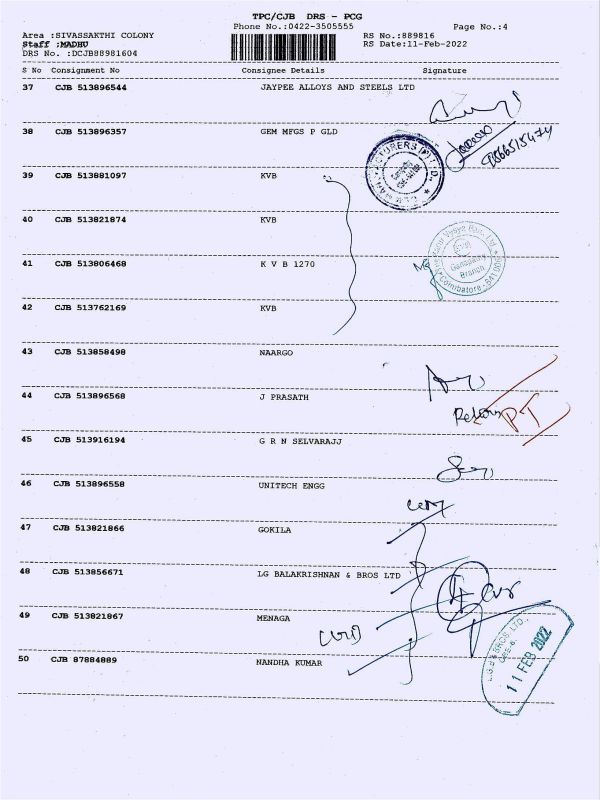 TPC/CJB DRS - PCG
Phone No.:0422-3505555 Page No.:4
Area :SIVASSAKTHI COLONY RS No.:889816
Staff :MADHU RS Date:11-Feb-2022
DRS No. :DCJB88981604
S No Consignment No Consignee Details Signature
37 CJB 513896544 JAYPEE ALLOYS AND STEELS LTD
38 CJB 513896357 GEM MFGS P GLD
39 CJB 513881097 KVB
40 CJB 513821874 KVB
41 CJB 513806468 K V B 1270
42 CJB 513762169 KVB
43 CJB 513858498 NAARGO
44 CJB 513896568 J PRASATH
PT
45 CJB 513916194 G R N SELVARAJJ
46 CJB 513896558 UNITECH ENGG
47 CJB 513821866 GOKILA
48 CJB 513856671 LG BALAKRISHNAN & BROS LTD
49 CJB 513821867 MENAGA
50 CJB 87884889 NANDHA KUMAR
Ganapathy
Branch
Coimbatore - 641 006
L.G.B & BROS. LTD.,
11 FEB 2022